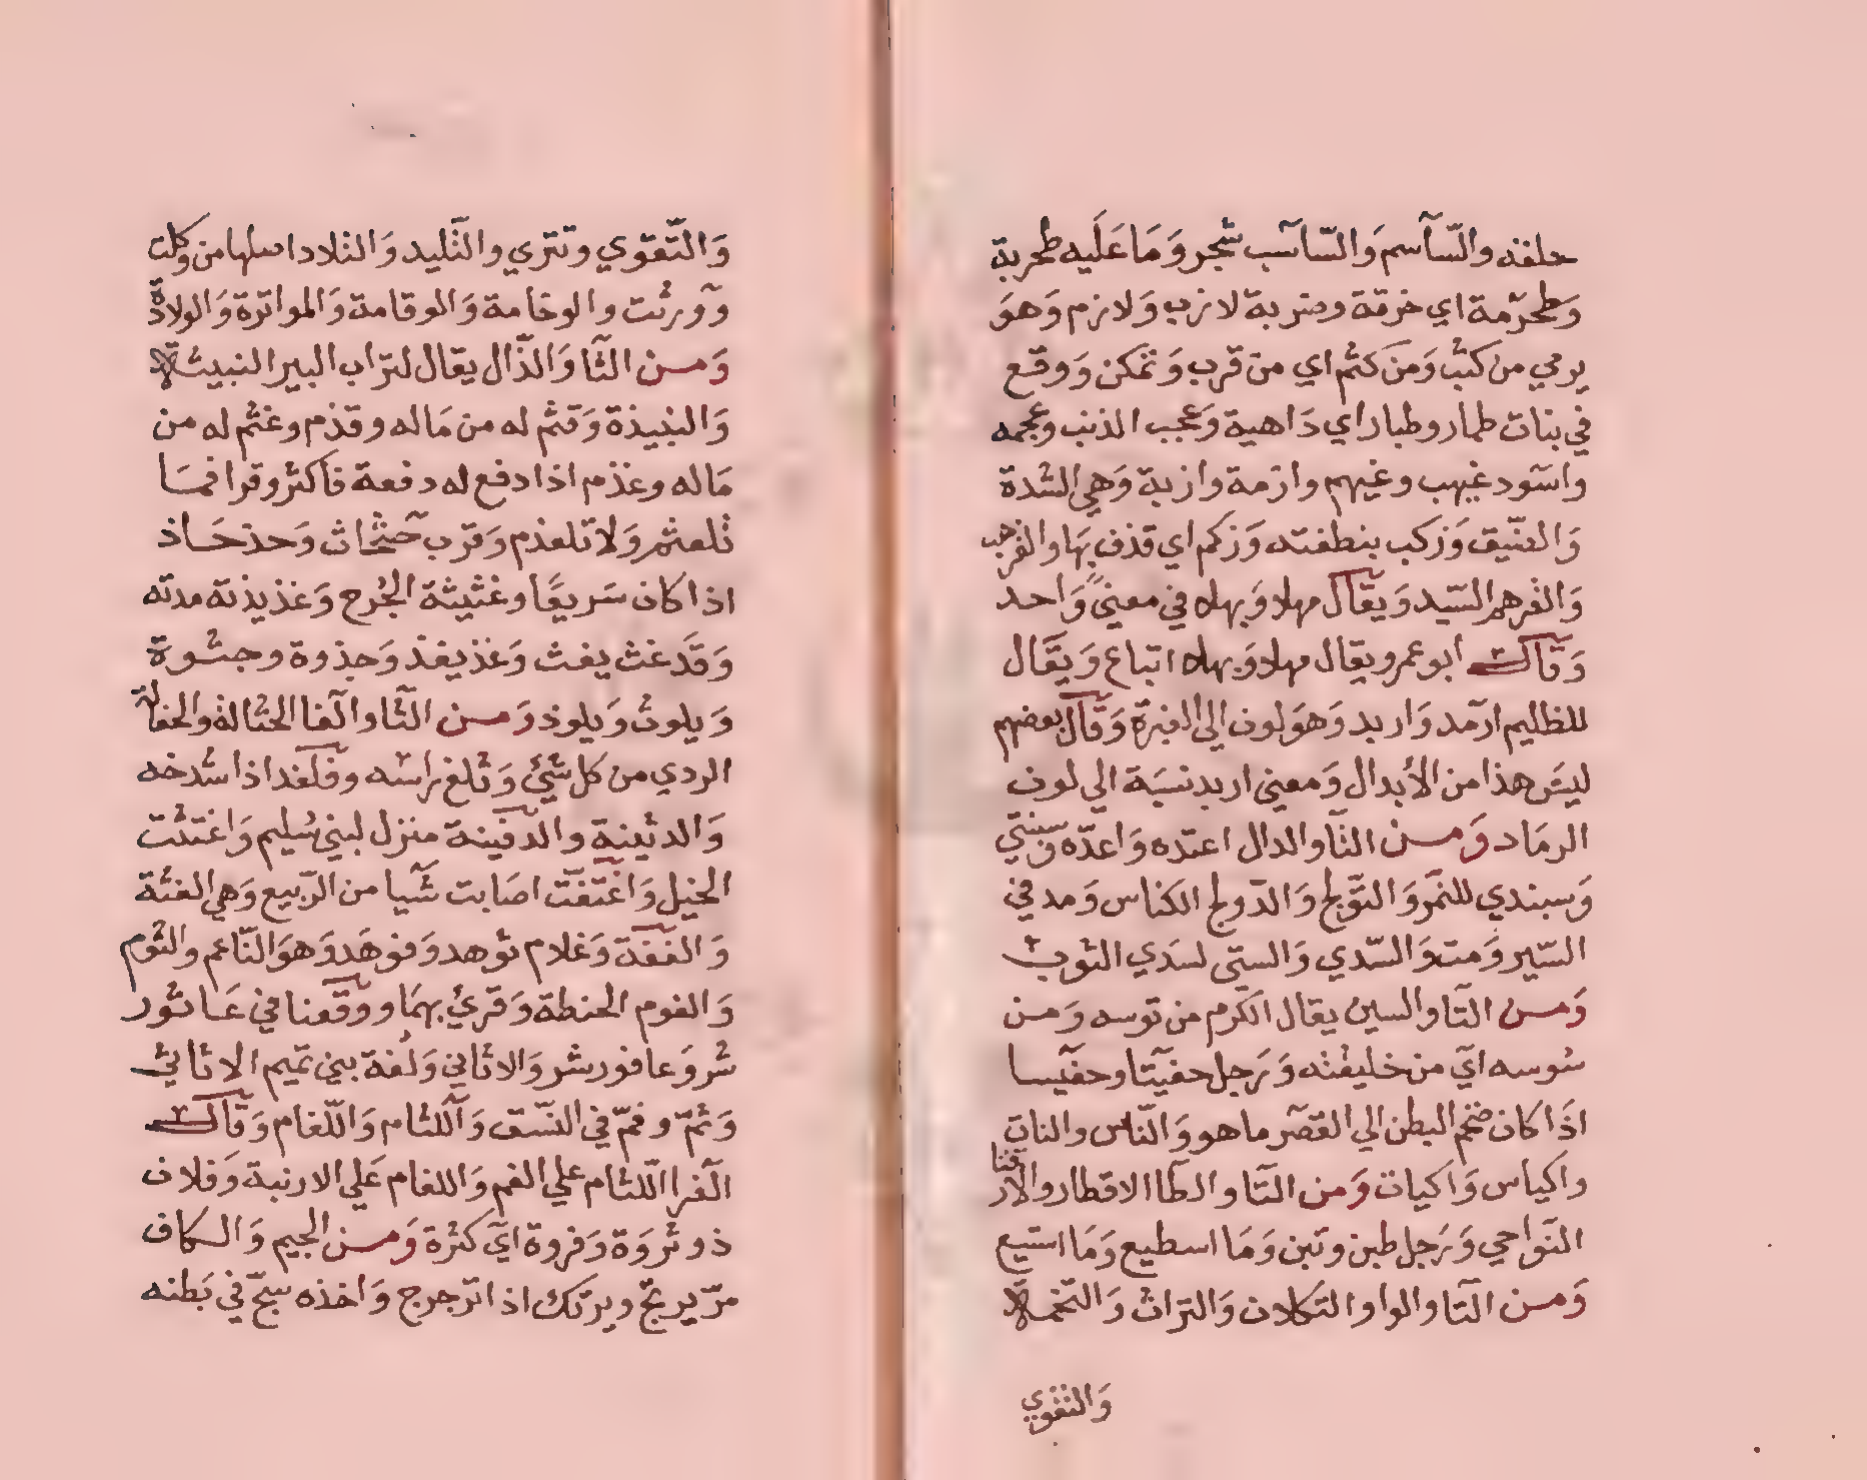 حلفته والسّآسم وَالسّاسَب شجر وَمَا عَلَيه طحربة
وَطحرَمة اي خرقة وضربة لازب وَلازم وَهوَ
يرمي من كثب وَمَن كثم اي من قرب وَتمكن وَوقع
في بنات طمار وطبار اي دَاهية وَعجب الذنب وعجمه
واسَود غيهب وغيهم وازمة وازبة وَهي الشدة
وَالضّيق وَزكب بنطفته وَزكم اي قذف بهَا والقرهب
وَالقرهم السّيد وَيقال مهلا وَبهلا في معنيً وَاحد
وَقال ابو عمرو يقال مهلا وَبهلا اتباع وَيقَال
للظليم ارمد وَاربد وَهوَ لون الي الغبرة وَقال بعضهم
ليسَ هذا من الأبدال وَمعني اربد نسبَة الي لون
الرمَاد وَمن التّا والدال اعتده وَاعدّه وَسبنتي
وَسبندي للنمَر وَالتّولج وَالدّولج الكناس وَمد في
السّير وَمت وَالسّدي وَالستي لسَدي الثوب
وَمن التّا والسين يقال الكرم من توسه وَمن
سُوسه اي من خليقته وَرَجل حفيتا وحفيسا
اذَا كان ضخم البطن الي القصَر ما هو وَالنّاس والنات
واكياس وَاكيات وَمن التّا والطا الاقطار والاقتار
النّواحي وَرَجل طبن وتبن وَمَا اسطيع وَمَا استيع
وَمن التّا والواو التكلان وَالتراث وَالتخمة
وَالتقوي
وَالتّقوي وتتري والتّليد وَالتلاد اصلها من وكلت
وَورثت والوخامة وَالوقامة وَالمواترة وَالولادة
وَمن الثّا وَالذّال يقال لتراب البير النبيثة
وَالنبيذة وَقثم له من مَاله وقذم وغثم له من
مَاله وغذم اذا دفع له دفعة فاكثر وقرا فمَا
تلعثم وَلا تلعذم وَقرَب حَثحاث وَحذحَاذ
اذا كان سَريعًا وغثيثة الجُرح وَغذيذته مدته
وَقَد غث يغث وَغذ يغذ وَجذوة وجثوة
وَيلوث وَيلوذ وَمن الثّا والفا الحثالة والحفالة
الردي من كل شيئ وَثلغ راسَه وفلغه اذا شدخه
وَالدثينة والدفينة منزل لبني سُليم وَاغتثت
الخيل وَاغتفت اصَابت شيا من الرّبيع وَهي الغثة
وَالغفة وَغلام ثوهد وَفوهَد وَهوَ النّاعم والثوم
وَالفوم الحنطة وَقرئ بهمَا ووَقعنا في عَاثور
شر وَعافور شر وَالاثافي وَلُغة بني تميم الاثاثي
وَثمّ وفمّ في النسّق وَاللثام وَاللّفام وَقال
الفرا اللّثام علي الفم وَاللفام عَلي الارنبة وَفلان
ذو ثروَة وَفروة اي كثرة وَمن الجيم وَالكاف
مرّ يرتج ويرتك اذا ترجرج وَاخذه سجّ في بَطنه